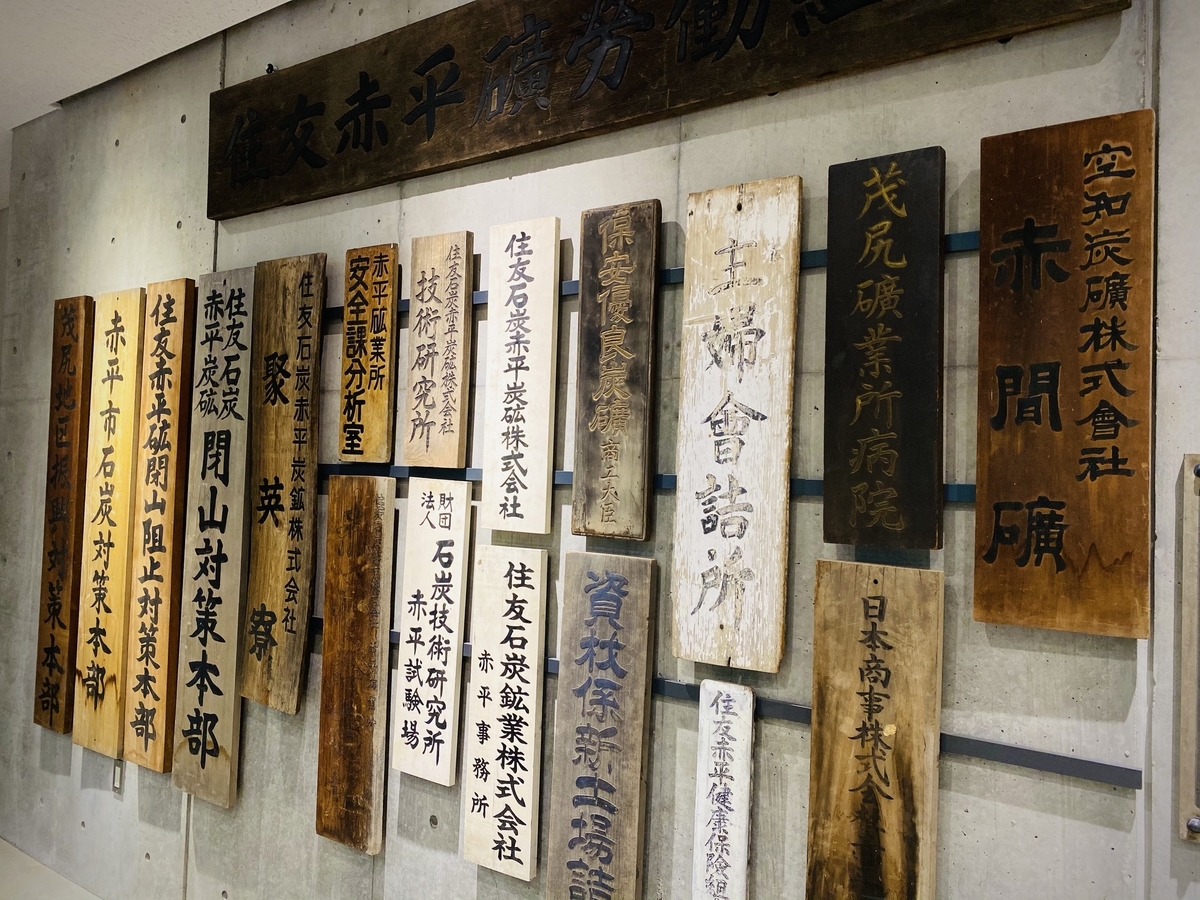 住友赤平礦労働組
空知炭礦株式會社
赤間礦
茂尻礦業所病院
主婦會詰所
保安優良炭礦 商工大臣
住友石炭赤平炭砿株式会社
住友石炭赤平炭砿株式会社
技術研究所
赤平砿業所
安全課分析室
住友石炭赤平炭鉱株式会社
聚英寮
住友石炭
赤平炭砿
閉山対策本部
住友赤平砿閉山阻止対策本部
赤平市石炭対策本部
茂尻地区振興対策本部
日本商事株式会社
住友赤平健康保険組
資材係新土場詰
住友石炭鉱業株式会社
赤平事務所
財団
法人
石炭技術研究所
赤平試験場